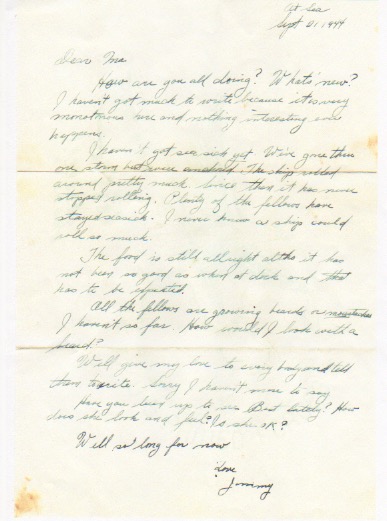 At Sea
Sept 21, 1944
Dear Ma
How are you all doing? What's new?
I haven't got much to write because it is very
monotonous here and nothing interesting ever
happens.
I haven't got sea sick yet. We've gone thru
one storm but The ship rolled
around pretty much since then it has never
stopped rolling. Plenty of the fellows have
stayed seasick. I never knew a ship could
roll so much.
The food is still allright altho it has
not been so good as when at dock and that
has to be expected.
All the fellows are growing beards or mustaches
I haven't so far. How would I look with a
beard?
Well give my love to every body and tell
them to write. Sorry I haven't more to say
Have you been up to see lately? How
does she look and feel? Is she OK?
Well so long for now
Love
Jimmy